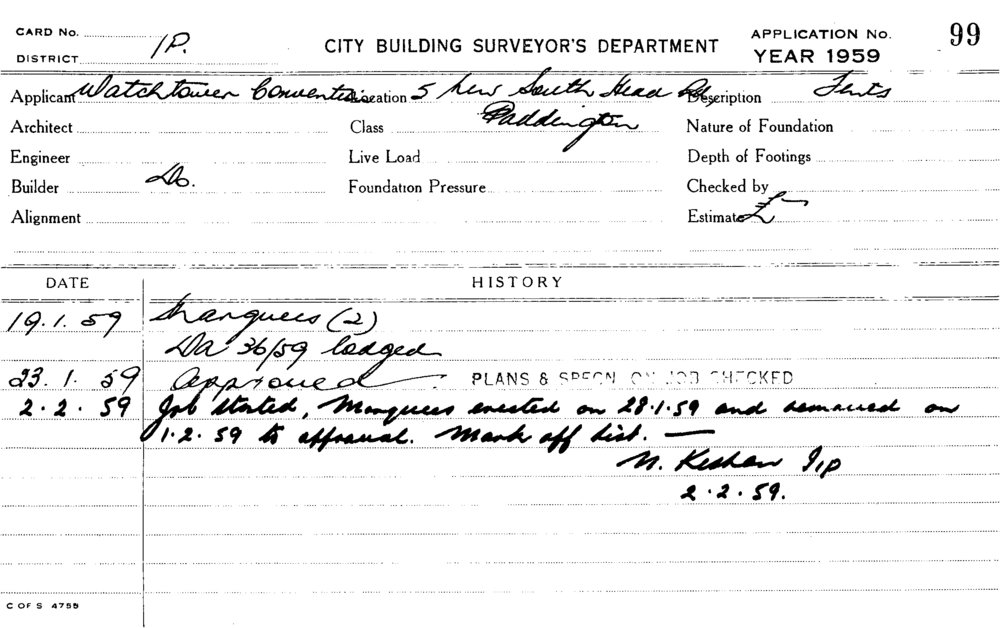 CARD No.
DISTRICT 1P.
CITY BUILDING SURVEYOR'S DEPARTMENT
APPLICATION No. 99
YEAR 1959
Applicant Watchtower Convention Location 5 New South Head Rd, Description Tents
Architect Class Paddington Nature of Foundation
Engineer Live Load Depth of Footings
Builder Do. Foundation Pressure Checked by
Alignment Estimate £ —
DATE HISTORY
19.1.59 Marquees (2)
Da 36/59 lodged
23.1.59 Approved PLANS & SPECN ON JOB CHECKED
2.2.59 Job started, Marquees erected on 28.1.59 and removed on
1.2.59 to approval. Mark off list. —
N. Keshan
2.2.59.
C OF S 4755